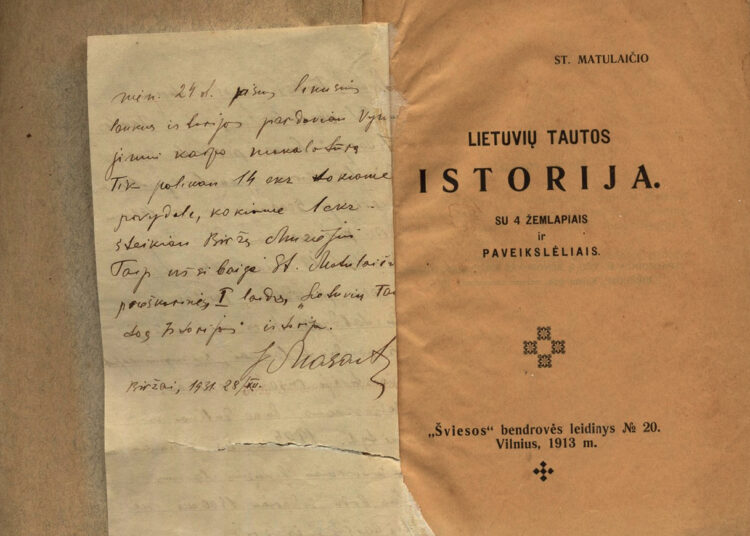 mėn. 24 d. pišus likusius
laukus istorijos pardaviau Vyni
jimui kaipo makalatūrą
Tik palikau 14 ekz tokiame
pavydale, kokiame 1 ekz.
steikiau Biržų Muziejui
Taip užsibaigė St. Matulaičio
prieškarinės I laidos „Lietuvių Tau
tos Istorijos" istorija.
Biržai, 1931. 28/XII.
ST. MATULAIČIO
LIETUVIŲ TAUTOS
ISTORIJA.
SU 4 ŽEMLAPIAIS
ir
PAVEIKSLĖLIAIS.
„Šviesos" bendrovės leidinys № 20.
Vilnius, 1913 m.